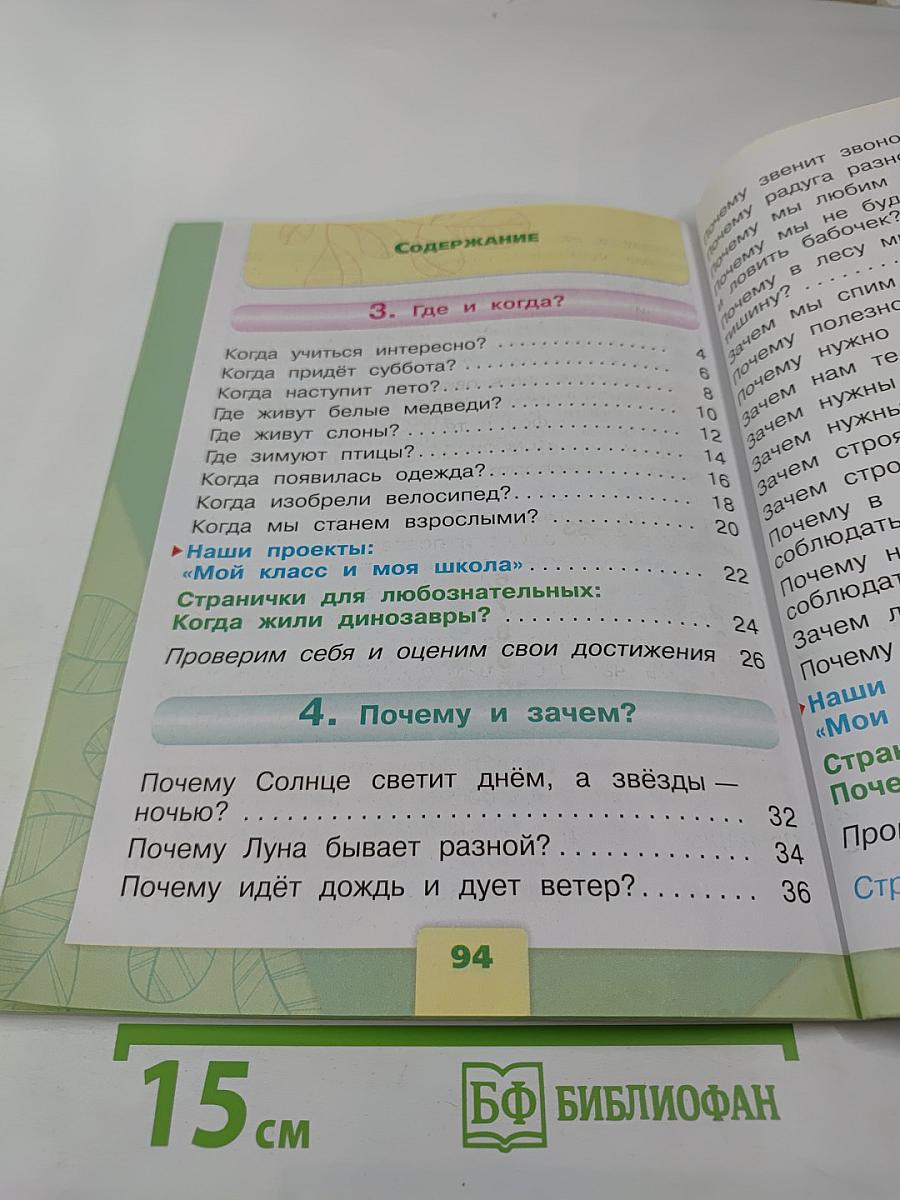 Содержание
3. Где и когда?
Когда учиться интересно? ................ 4
Когда придёт суббота? ................ 6
Когда наступит лето? ................ 8
Где живут белые медведи? ................ 10
Где живут слоны? ................ 12
Где зимуют птицы? ................ 14
Когда появилась одежда? ................ 16
Когда изобрели велосипед? ................ 18
Когда мы станем взрослыми? ............ 20
Наши проекты:
«Мой класс и моя школа» .............. 22
Странички для любознательных:
Когда жили динозавры? ................ 24
Проверим себя и оценим свои достижения 26
4. Почему и зачем?
Почему Солнце светит днём, а звёзды —
ночью? .................................. 32
Почему Луна бывает разной? ............. 34
Почему идёт дождь и дует ветер? ........ 36
94
Почему звенит
Почему радуга
Почему мы любим
Почему мы не
и ловить бабочек?
Почему в лесу
тишину? ........
Зачем мы спим
Почему полезно
Почему нужно
Зачем нам
Зачем нужны
Зачем нужны
Зачем
Зачем
Почему в
соблюдать
Почему
Зачем
Почему
Наши
«Мои
15 см
БФ БИБЛИОФАН